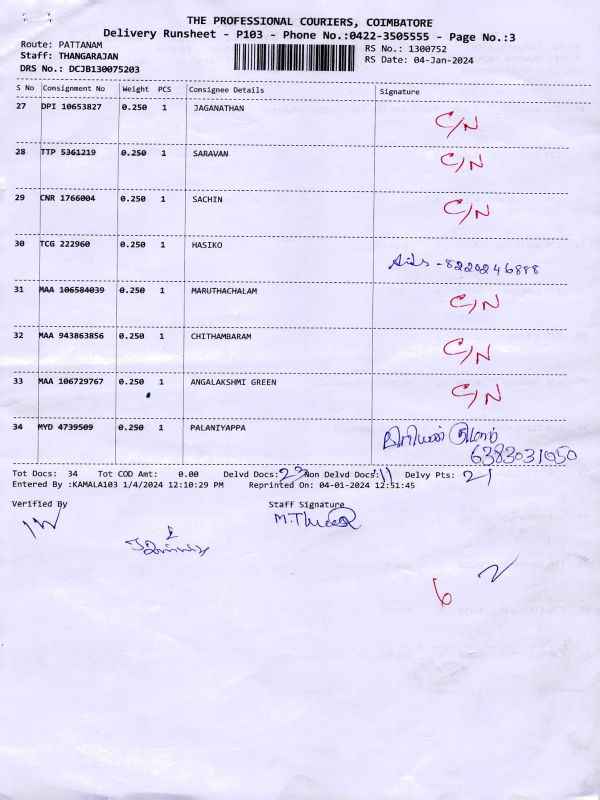 THE PROFESSIONAL COURIERS, COIMBATORE
Delivery Runsheet - P103 - Phone No.:0422-3505555 - Page No.:3
Route: PATTANAM RS No.: 1300752
Staff: THANGARAJAN RS Date: 04-Jan-2024
DRS No.: DCJB130075203
S No Consignment No Weight PCS Consignee Details Signature
27 DPI 10653827 0.250 1 JAGANATHAN C/N
28 TTP 5361219 0.250 1 SARAVAN C/N
29 CNR 1766004 0.250 1 SACHIN C/N
30 TCG 222960 0.250 1 HASIKO - 8220246888
31 MAA 106584039 0.250 1 MARUTHACHALAM C/N
32 MAA 943863856 0.250 1 CHITHAMBARAM C/N
33 MAA 106729767 0.250 1 ANGALAKSHMI GREEN C/N
34 MYD 4739509 0.250 1 PALANIYAPPA
6383031050
Tot Docs: 34 Tot COD Amt: 0.00 Delvd Docs: 23 Non Delvd Docs: 11 Delvy Pts: 21
Entered By :KAMALA103 1/4/2024 12:10:29 PM Reprinted On: 04-01-2024 12:51:45
Verified By Staff Signature
6